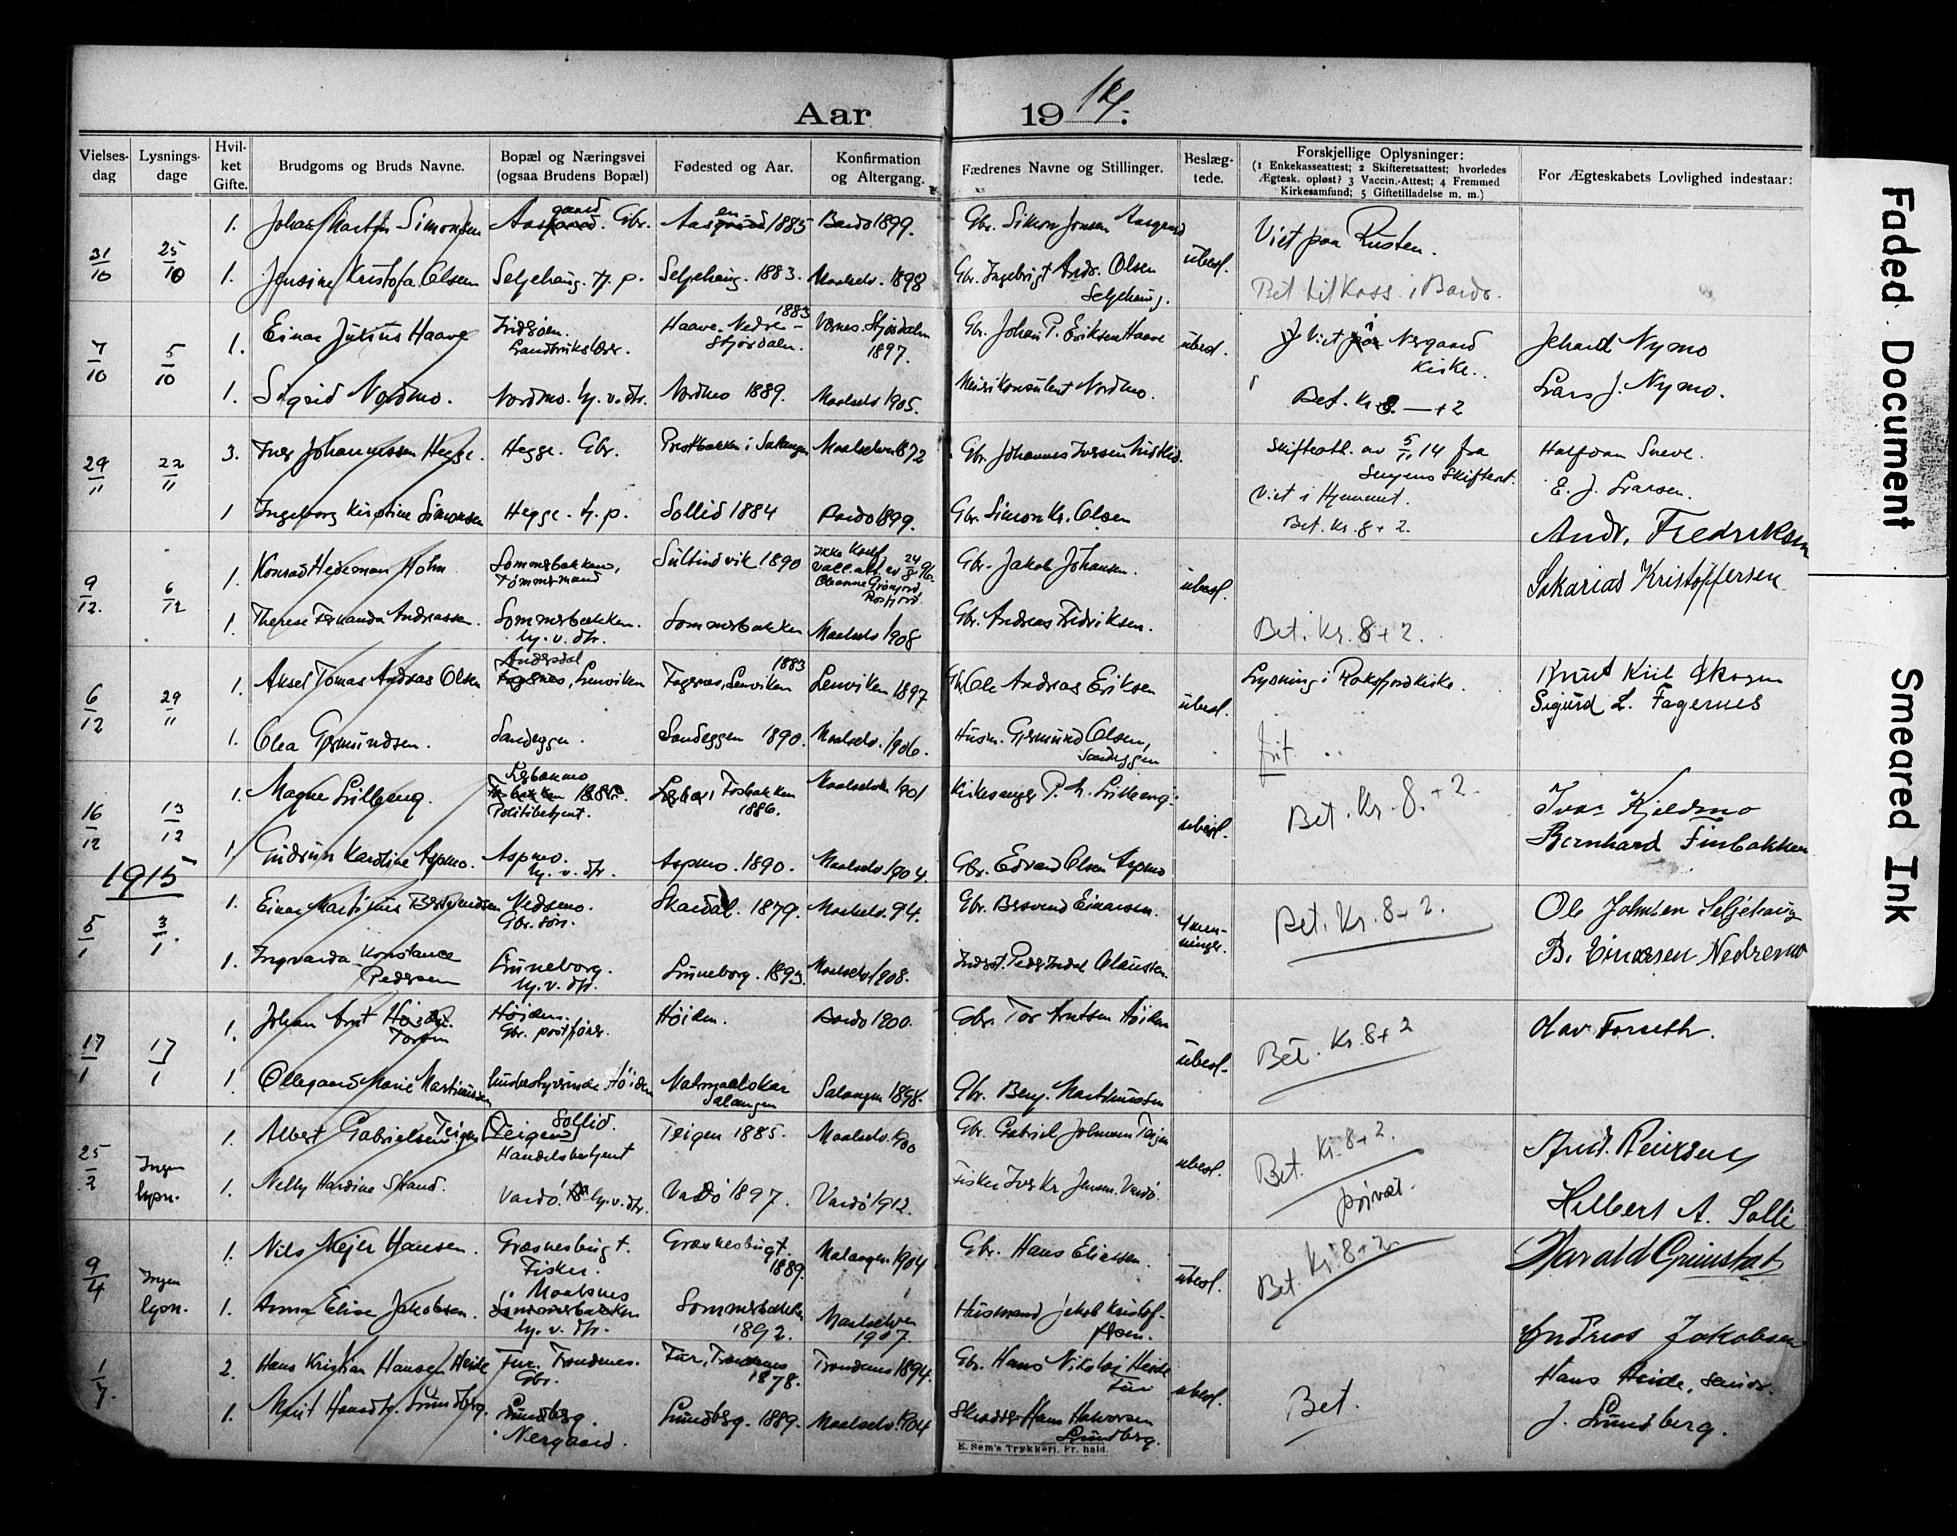 Aar 1914.
Vielses-dag
Lysnings-dage
Hvil-ket Gifte.
Brudgoms og Bruds Navne.
Bopæl og Næringsvei (ogsaa Brudens Bopæl)
Fødested og Aar.
Konfirmation og Altergang.
Fædrenes Navne og Stillinger.
Beslæg-tede.
Forskjellige Oplysninger:
(1 Enkekasseattest; 2 Skifteretsattest; hvorledes Ægtesk. opløst? 3 Vaccin.-Attest; 4 Fremmed Kirkesamfund; 5 Giftetilladelse m. m.)
For Ægteskabets Lovlighed indestaar:
31/10 25/10 1. Johan Martin Simonsen Aasgaard. Gbr. Aasen 1885 Bardo 1899. Gbr. Simon Jonsen Aasgaard ubesl. Viet paa Rusten.
1. Jensine Kristofa Olsen Seljehaug. h. p. Seljehaug. 1883. Maalselv. 1898 Gbr. Ingebrigt Andr. Olsen Seljehaug. Bet til Kass. i Bardo.
7/10 5/10 1. Einar Julius Haave Landbrukslærer. Haave. Nedre Stjørdalen. 1883 Værnes. Stjørdalen 1897. Gbr. Johan P. Eriksen Haave ubesl. Viet i Nergaard Kirke. Jehard Nymo
1. Sigrid Nordmo. Nordmo. hj. v. dtr. Nordmo 1889. Maalselv 1905. Meierikonsulent Nordmo. Bet. Kr 8. — + 2 Lars J. Nymo.
29/11 22/11 3. Iver Johannessen Hegge. Hegge. Gbr. Prestbakken i Salangen Maalselven 1872 Gbr. Johannes Iversen Skifteatt. av 5/11 14 fra Senjens Skifteret. Halfdan Sneve.
1 Ingeborg Kirstine Simonsen Hegge. h. p. Sollid 1884 Bardo 1899. Gbr. Simon Kr. Olsen Viet i Hjemmet. Bet. Kr. 8 + 2. E. J. Larsen.
9/12. 6/12 1. Konrad Hedeman Holm Sommerbakken, Tømmermand Sultindvik 1890 Ikke Konf. Gbr. Jakob Johansen. ubesl. Andr. Fredriksen
1. Therese Fernanda Andreassen. Sommerbakken. hj. v. dtr. Sommerbakken Maalselv 1908 Gbr. Andreas Fredriksen. Bet. Kr. 8 + 2. Sakarias Kristoffersen
6/12 29/11 1. Aksel Tomas Andreas Olsen Andersdal Fagernes, Lenviken Fagernes, Lenviken 1883 Lenviken 1897 Gbr Ole Andreas Eriksen ubesl. Lysning i Roksfjordkirke. Knut Kiil Skogen
1. Olea Germundsen. Sandeggen. Sandeggen 1890. Maalselv. 1906. Husm. Germund Olsen, Sandeggen Frit. Sigurd L. Fagernes
16/12 13/12 1. Magne Lilleeng. Politibetjent. Fosbakken 1886. Maalselv 1901 Kirkesanger P. L. Lilleeng. ubesl. Bet. Kr. 8. + 2. Ivar Kjeldmo
1. Gudrun Karoline Aspmo. Aspmo. hj. v. dtr. Aspmo. 1890. Maalselv 1904. Gbr. Edvard Olsen Aspmo Bernhard Finbakken
1915
5/1 3/1 1. Einar Martinus Bersvendsen Nedremo. Gbr. søn. Skardal. 1879. Maalselv. 94. Gbr. Bersvend Einarsen. 4 men-ninger. Bet. Kr. 8 + 2. Ole Johnsen Seljehaug
1. Ingvarda Konstance Pedersen Luneborg. hj. v. dtr. Luneborg. 1893. Maalselv 1908. Indst. Peder Indal Claussen B. Einarsen Nedremo
17/1 17/1 1. Johan Arnt Høiden. Torsen Høiden. Gbr. postfører. Høiden. Bardo 1900. Gbr. Tor Arntsen Høiden ubesl. Bet. Kr. 8 + 2 Olav Forseth.
1. Ollegaard Marie Martinussen husbestyrerinde Høiden Salangen Salangen 1898. Gbr. Benj. Martinussen
25/2 Ingen lysn. 1. Albert Gabrielsen Teigen Sollid. (Teigen) Handelsbetjent Teigen 1885. Maalselv. 1900 Gbr. Gabriel Johnsen Teigen ubesl. Bet. Kr. 8 + 2. privat. And. Reiersen
1. Nelly Hardine Strand. Vardö. hj. v. dtr. Vardö 1897. Vardö 1912. Fisker Iver Kr. Jensen. Vardö. Hilbert A. Solli
9/4 Ingen lysn. 1. Nils Mejer Hansen. Græsnesbugt. Fisker. Græsnesbugt. 1889. Malangen 1904 Gbr. Hans Eliassen. ubesl. Bet. Kr. 8 + 2 Harald Grimstad
1. Anna Elise Jakobsen. Moalsnes Sommerbakken hj. v. dtr. Sommerbakken 1892. Maalselven 1907. Husmand Jakob Kristoffersen. Andreas Jakobsen
1/7. 2. Hans Kristian Hansen Heide Fur. Trondenes. Gbr. Fur, Trondenes 1878. Trondenes 1894. Gbr. Hans Nikolai Heide Fur ubesl. Bet. Hans Heide, senior.
1. Marit Lundberg. Lundberg. Nergaard. Lundberg. 1889. Maalselv. 1904 Skrædder Hans Halvorsen Lundberg. J. Lundberg.
E. Sem's Trykkeri, Fr. hald.
Faded Document
Smeared Ink